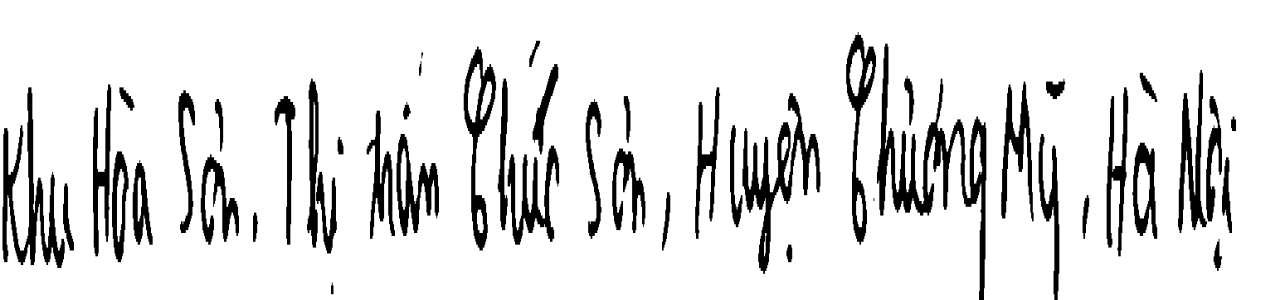 Khu Hòa Sơn, Thị trấn Chúc Sơn, Huyện Chương Mỹ, Hà Nội